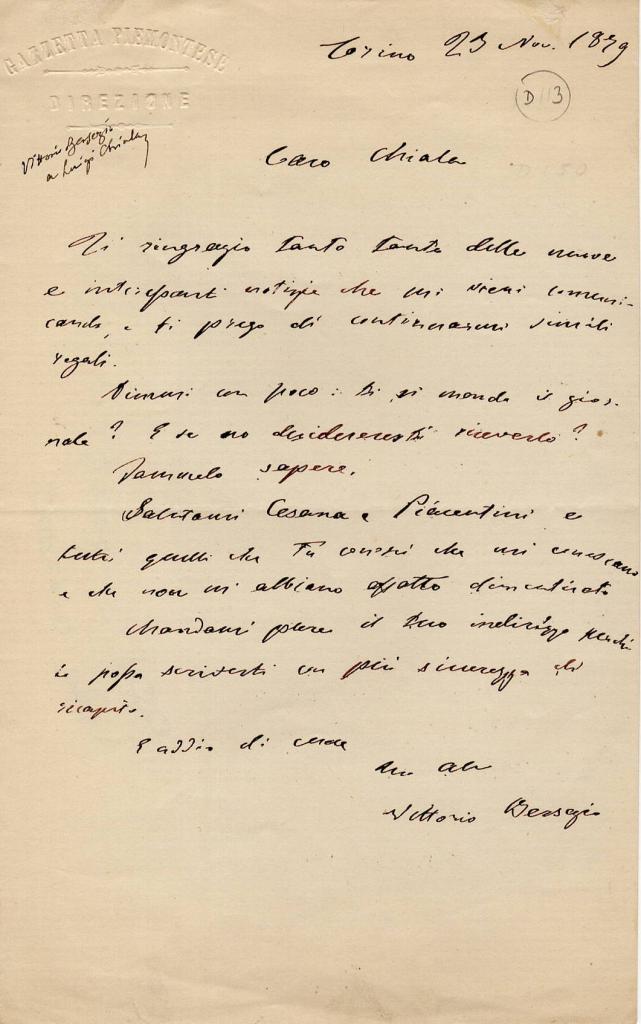 GAZZETTA PIEMONTESE
DIREZIONE
Torino 23 Nov. 1879
D 113
Vittorio Bersezio
a Luigi Chiala
Caro Chiala
Ti ringrazio tanto tanto delle nuove
e interessanti notizie che mi vieni comuni-
cando, e ti prego di continuarmi simili
regali.
Dimmi un poco: ti si manda il gior-
nale? E se no desidereresti riceverlo?
Fammelo sapere.
Salutami Cesana e Piacentini e
tutti quelli che tu conosci che mi conoscano
e che non mi abbiano affatto dimenticato
Mandami pure il tuo indirizzo perchè
io possa scriverti con più sicurezza di
ricapito.
E addio di cuore
Vittorio Bersezio